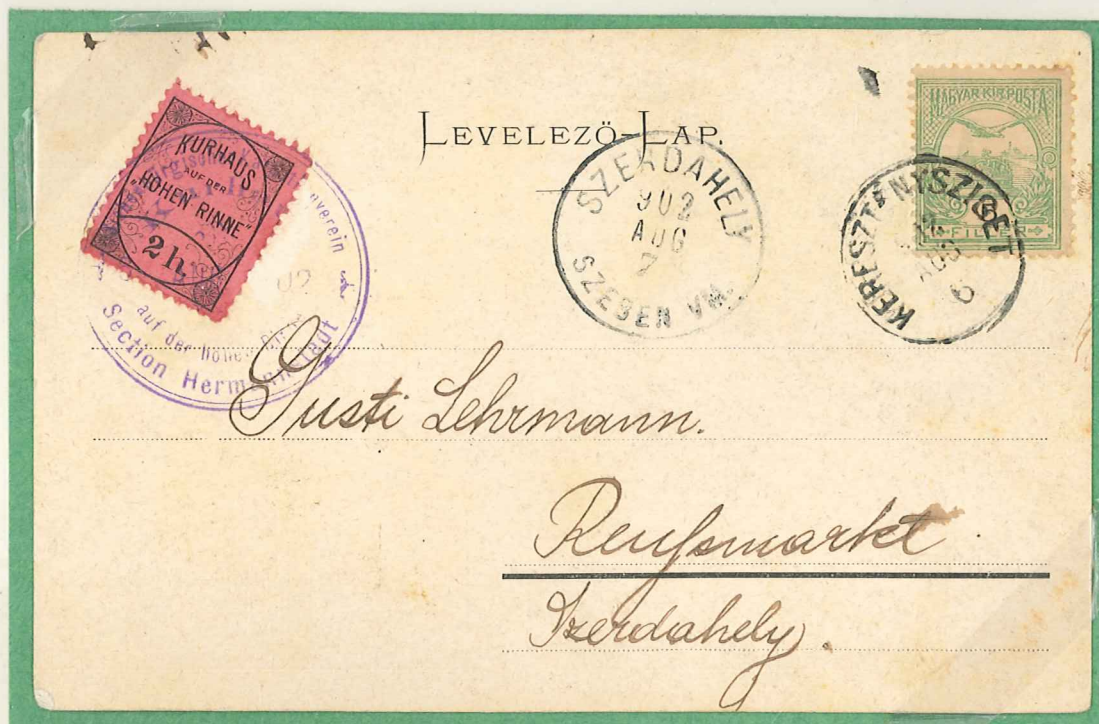 LEVELEZŐ-LAP.
KURHAUS
AUF DER
"HOHEN RINNE"
2 h.
auf der hohen
Section Hermannstadt
SZERDAHELY
902
AUG
7
SZEBEN VM.
MAGYAR KIR. POSTA
FILLÉR
KERESZTÉNYSZIGET
AUG
6
Gusti Lehrmann.
Reußmarkt
Szerdahely.